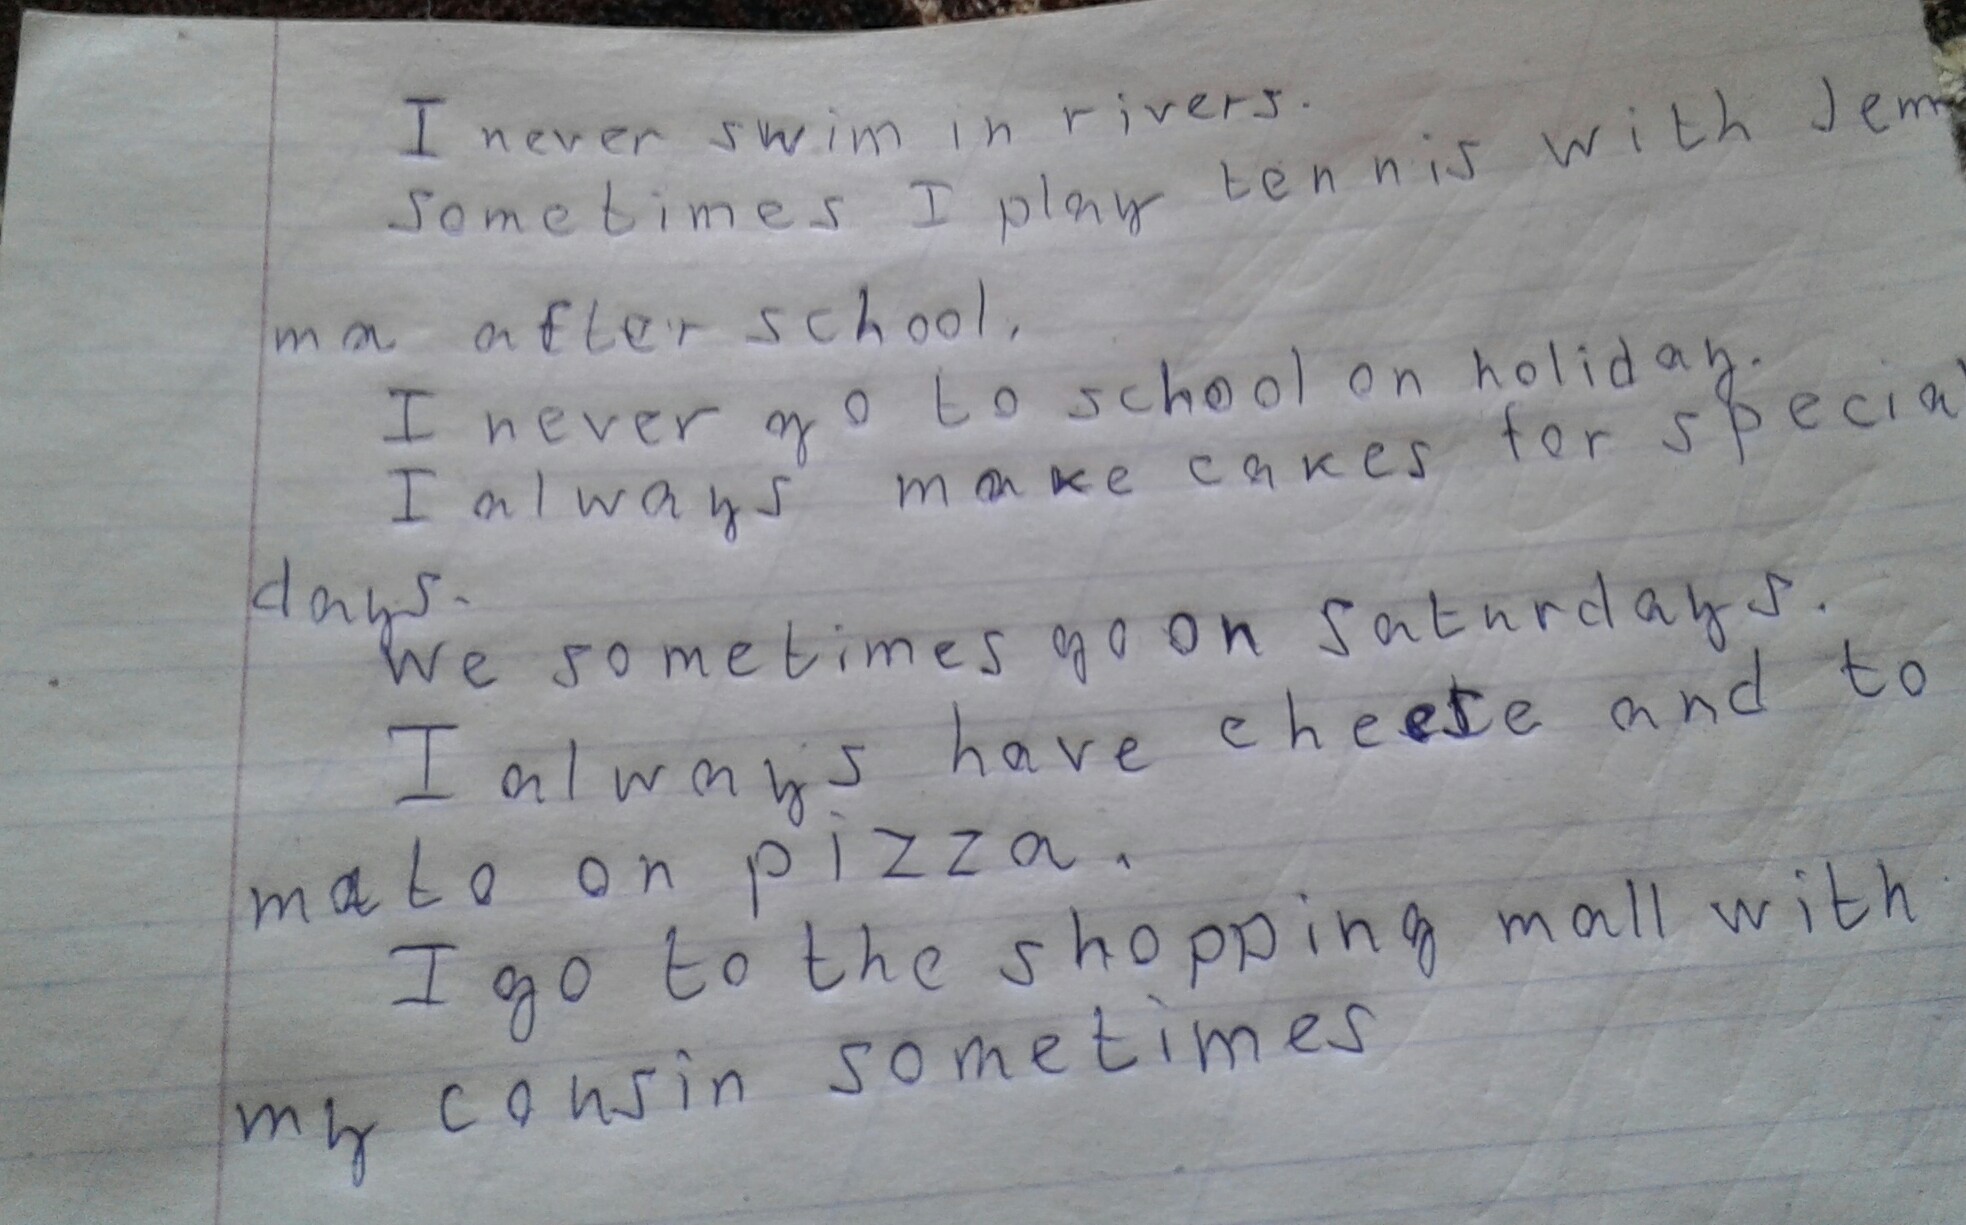 I never swim in rivers.
Sometimes I play tennis with Jem
ma after school.
I never go to school on holiday.
I always make cakes for special
days.
We sometimes go on Saturdays.
I always have cheese and to
mato on pizza.
I go to the shopping mall with
my cousin sometimes